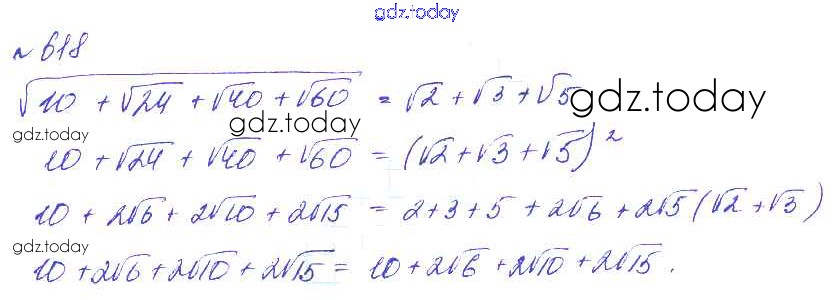 gdz.today
№ 618
√(10 + √24 + √40 + √60) = √2 + √3 + √5
gdz.today
gdz.today
gdz.today
10 + √24 + √40 + √60 = (√2 + √3 + √5)²
10 + 2√6 + 2√10 + 2√15 = 2 + 3 + 5 + 2√6 + 2√5 (√2 + √3)
gdz.today
10 + 2√6 + 2√10 + 2√15 = 10 + 2√6 + 2√10 + 2√15.